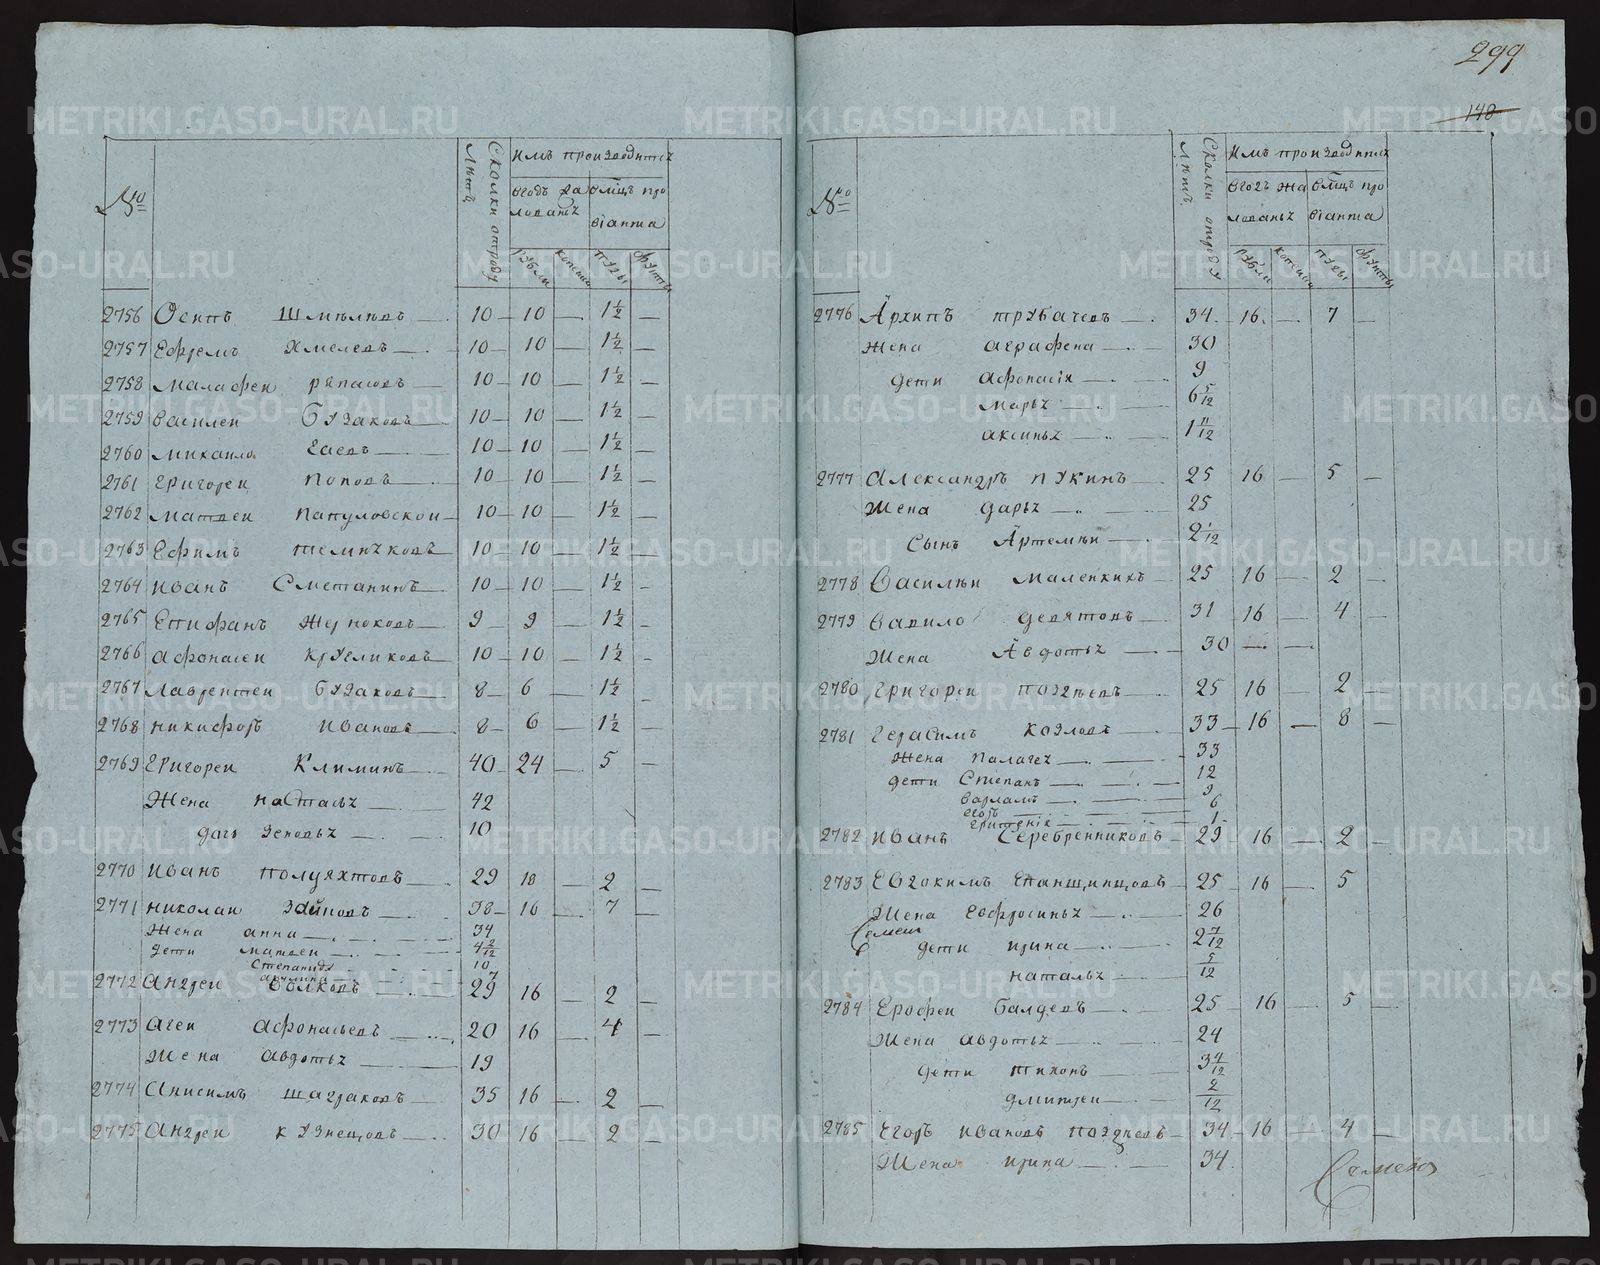 299
148
№
Сколки отроду
Лѣтъ
Имъ производитьѧ
вгодъ жа
лованьѧ
вмѣцъ про
віанта
рубли
копеики
пуды
фунты
2756 Осипъ Шмѣлевъ 10 10 — 1½ —
2757 Ефремъ Хмелевъ 10 10 — 1½ —
2758 Малафеи 10 10 — 1½ —
2759 Василеи Бузаковъ 10 10 — 1½ —
2760 Михаило Еаевъ 10 10 — 1½ —
2761 Григореи Поповъ 10 10 — 1½ —
2762 Матвеи Папуловскои 10 10 — 1½ —
2763 Ефимъ 10 10 — 1½ —
2764 Иванъ Сметанинъ 10 10 — 1½ —
2765 Епифанъ Жерноковъ 9 9 — 1½ —
2766 Афонасеи Кругликовъ 10 10 — 1½ —
2767 Лаврентеи Бузаковъ 8 6 — 1½ —
2768 Никифоръ Ивановъ 8 6 — 1½ —
2769 Григореи Климинъ 40 24 — 5 —
Жена Настасьѧ 42
дочь Зеновьѧ 10
2770 Иванъ Полуяхтовъ 29 18 — 2 —
2771 Николаи 38 16 — 7 —
Жена Анна 34
дети Матвеи 4 2/12
Степанида 10
7
2772 Андреи Волковъ 29 16 — 2 —
2773 Агеи Афонасьевъ 20 16 — 4 —
Жена Авдотьѧ 19
2774 Анисимъ Шадраковъ 35 16 — 2 —
2775 Андреи Кузнецовъ 30 16 — 2 —
№
Сколки отроду
Лѣтъ
Имъ производитьѧ
вгодъ жа
лованьѧ
вмѣцъ про
віанта
рубли
копеики
пуды
фунты
2776 Архипъ Трубачевъ 34 16 — 7 —
Жена Аграфена 30
дети Афонасія 9
Марьѧ 6 5/12
Аксиньѧ 1 11/12
2777 Александръ Пукинъ 25 16 — 5 —
Жена Дарьѧ 25
Сынъ Артемѣи 2 1/12
2778 Василѣи Маленкихъ 25 16 — 2 —
2779 Вавило Девятовъ 31 16 — 4 —
Жена Авдотьѧ 30
2780 Григореи Позднѣевъ 25 16 — 2
2781 Герасимъ Козловъ 33 16 — 8 —
Жена Палагеѧ 33
дети Степанъ 12
Варламъ 9
Егоръ 6
1
2782 Иванъ Серебренниковъ 29 16 — 2 —
2783 Евдокимъ Епаншинцовъ 25 16 — 5
Жена Ефросиньѧ 26
Семен
дети Ирина 2 7/12
Натальѧ 5/12
2784 Ерофеи Балуевъ 25 16 — 5 —
Жена Авдотьѧ 24
дети Тихонъ 3 4/12
Дмитреи 2/12
2785 Егоръ Ивановъ Позднеевъ 34 16 — 4 —
Жена Ирина 34
Семенов
METRIKI.GASO-URAL.RU